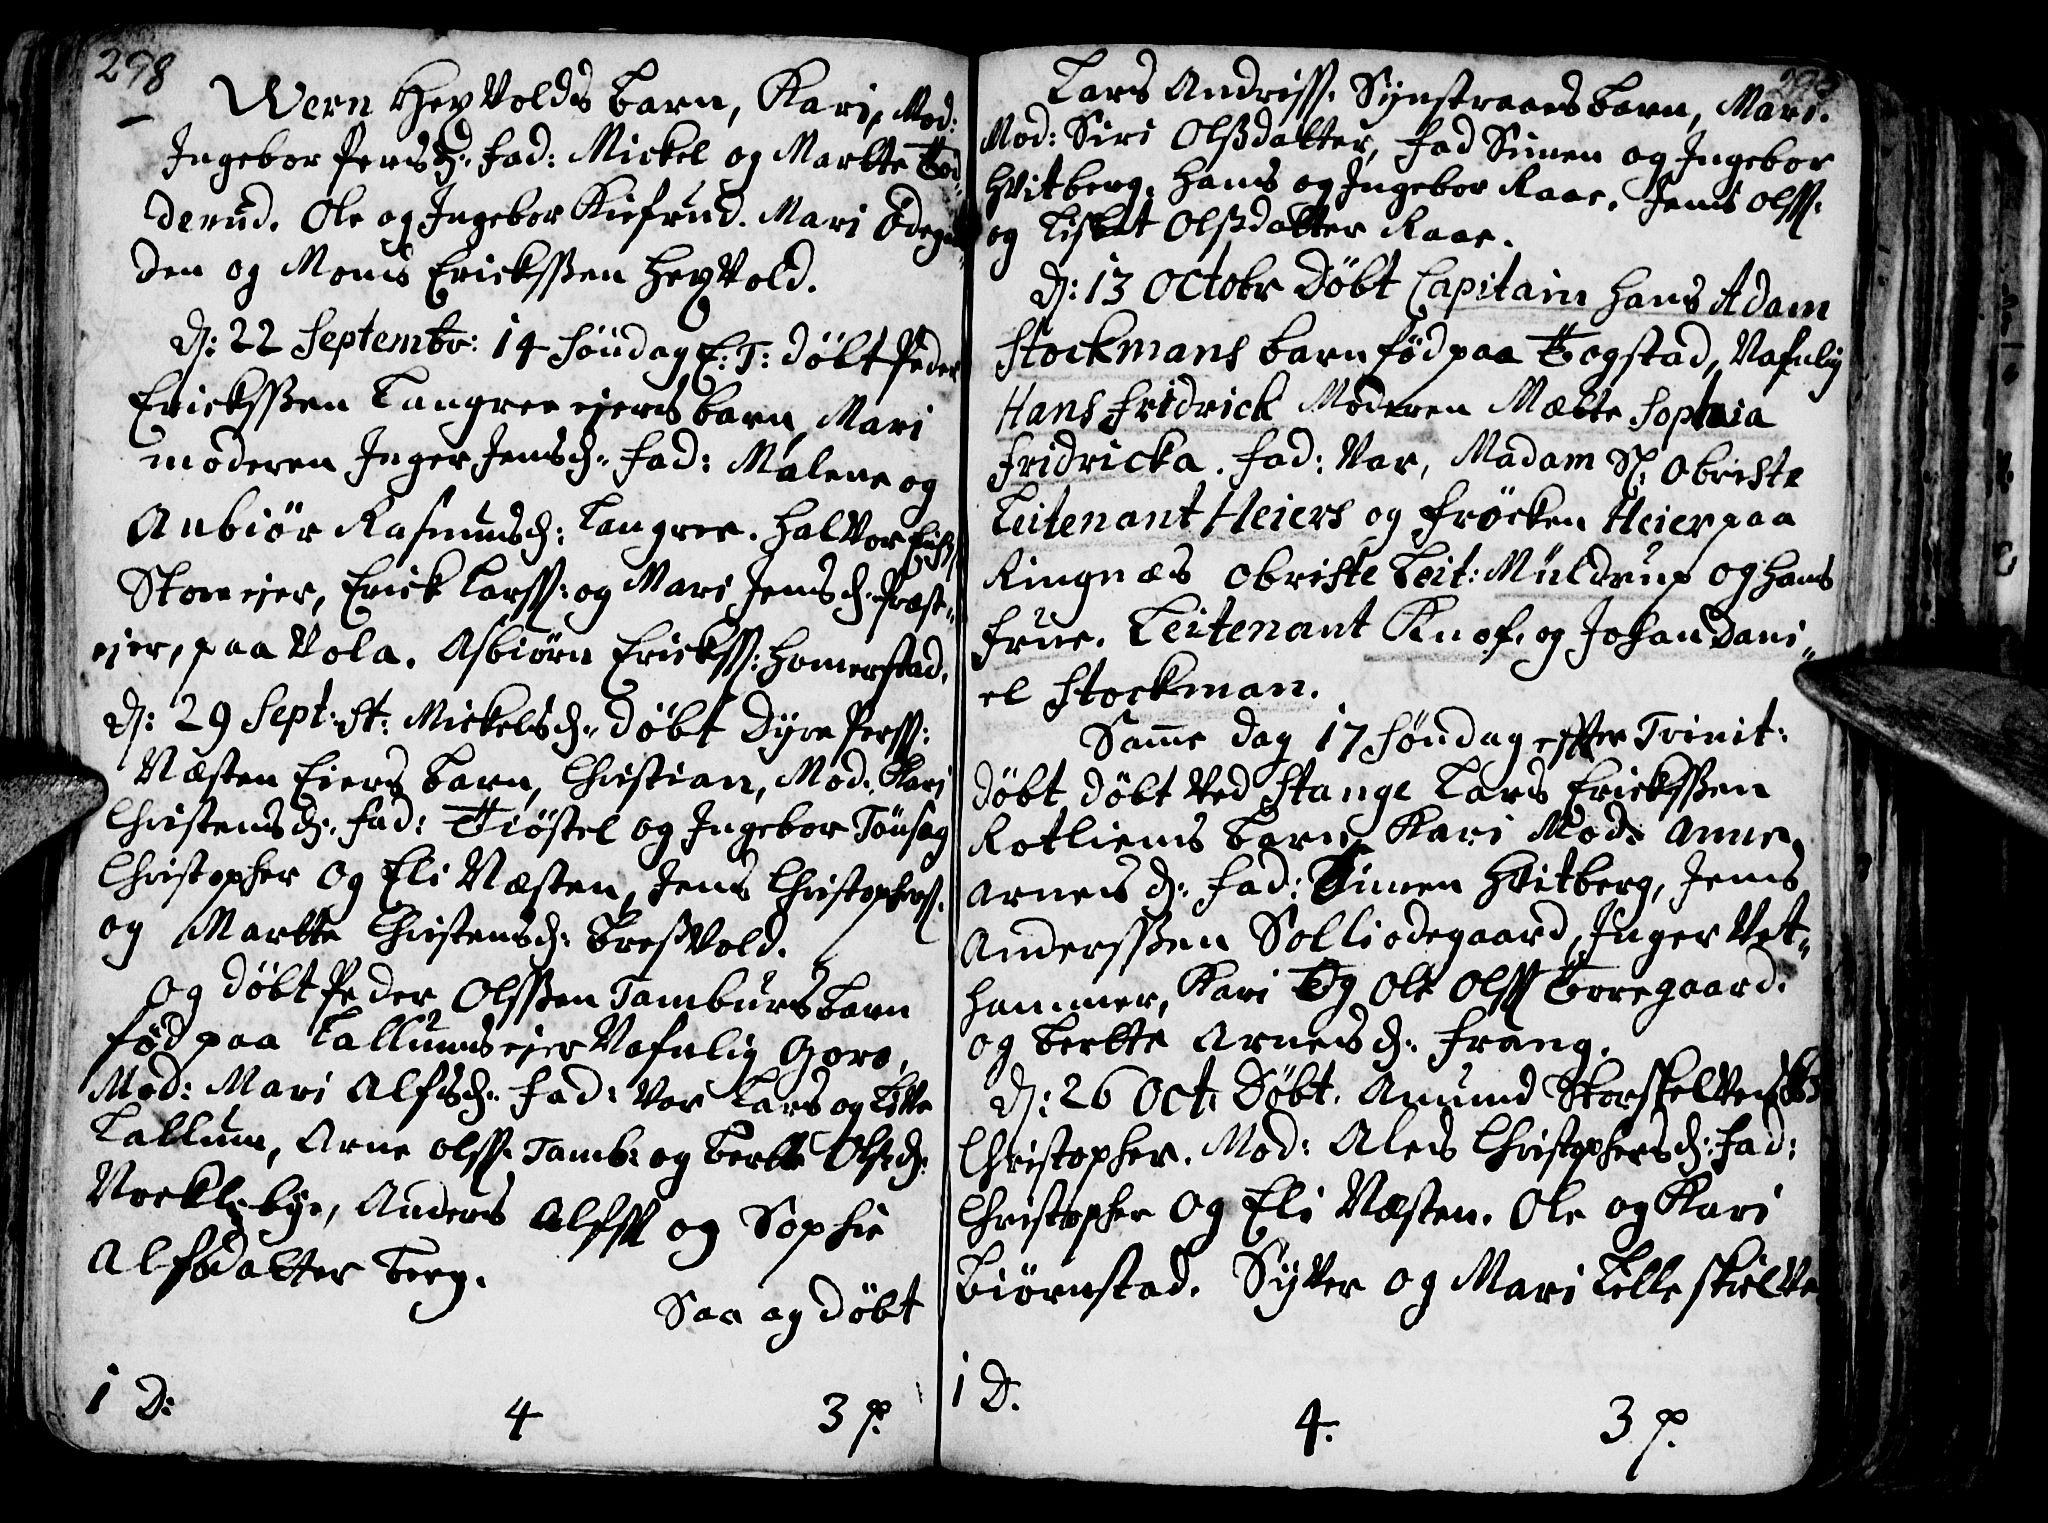 298
Wern HexVolds barn, Kari, Mod:
Ingebor Persd: fad: Mickel og Martte Bod-
derud. Ole og Ingebor Kiefrud. Mari Ödega-
den og Mons Erickssen HexVold.
D: 22 Septembr: 14 Söndag E: T: döbt Peder
Erickssen Tangree ejers barn, Mari
moderen Inger Jensd: fad: Malene og
Anbiör Rasmusd: Tangree. Halvor
Stor ejer, Erick Larss: og Mari Jensd: Præst-
ejer, paa Vola. Asbiörn Erickss: Homerstad.
D: 29 Sept: St: Mickelsd: döbt Dyre Perss:
Næsten Eiers barn, Christian, Mod: Kari
Christensd: fad: Kiöstel og Ingebor Tönsag
Christopher og Eli Næsten, Jens Christophers:
og Martte Christensd: Bressvold.
og döbt Peder Olssen Tamburs barn
föd paa Tallums ejer Nafnlig Goro,
Mod: Mari Alfsd: fad: Var Lars og Live
Tallum, Arne Olss: Tamb: og Berte Olsd:
Nocklebye, Anders Alfss og Sophie
Alfsdatter Berg.
Saa og döbt
1 D: 4 3 p.
Lars Andriss: Synstraaes barn, Mari.
Mod: Siri Olssdatter, fad Simen og Ingebor
Hvitberg. Hans og Ingebor Raae. Jens Olss:
og Lisbet Olssdatter Raae.
D: 13 Octobr Döbt Capitain Hans Adam
Stockmans barn föd paa Togstad, Nafnlig
Hans fridrick Moderen Mætte Sophia
fridricka. fad: Var, Madam Sl: Obriste
Leitenant Heiers og fröcken Heier paa
Ringnæs Obriste Leit: Müldrup og hans
frue. Leitenant Knof. og Johan Dani-
el Stockman.
Samme dag 17 Söndag efter Trinit:
döbt döbt Ved Stange Lars Erickssen
Rotliens barn Kari Mod: Anne
Arnesd: fad: Simen Hvitberg, Jens
Anderssen Solliodegaard, Inger Vet-
hammer, Kari og Ole Olss Toregaard.
og Berte Arnesd: frang.
D: 26 Oct: Döbt. Amund Storskelven
Christopher. Mod: Ales Christophersd: fad:
Christopher og Eli Næsten. Ole og Kari
Biörnstad. Syver og Mari Lelle skielve
1 D. 4. 3 p.